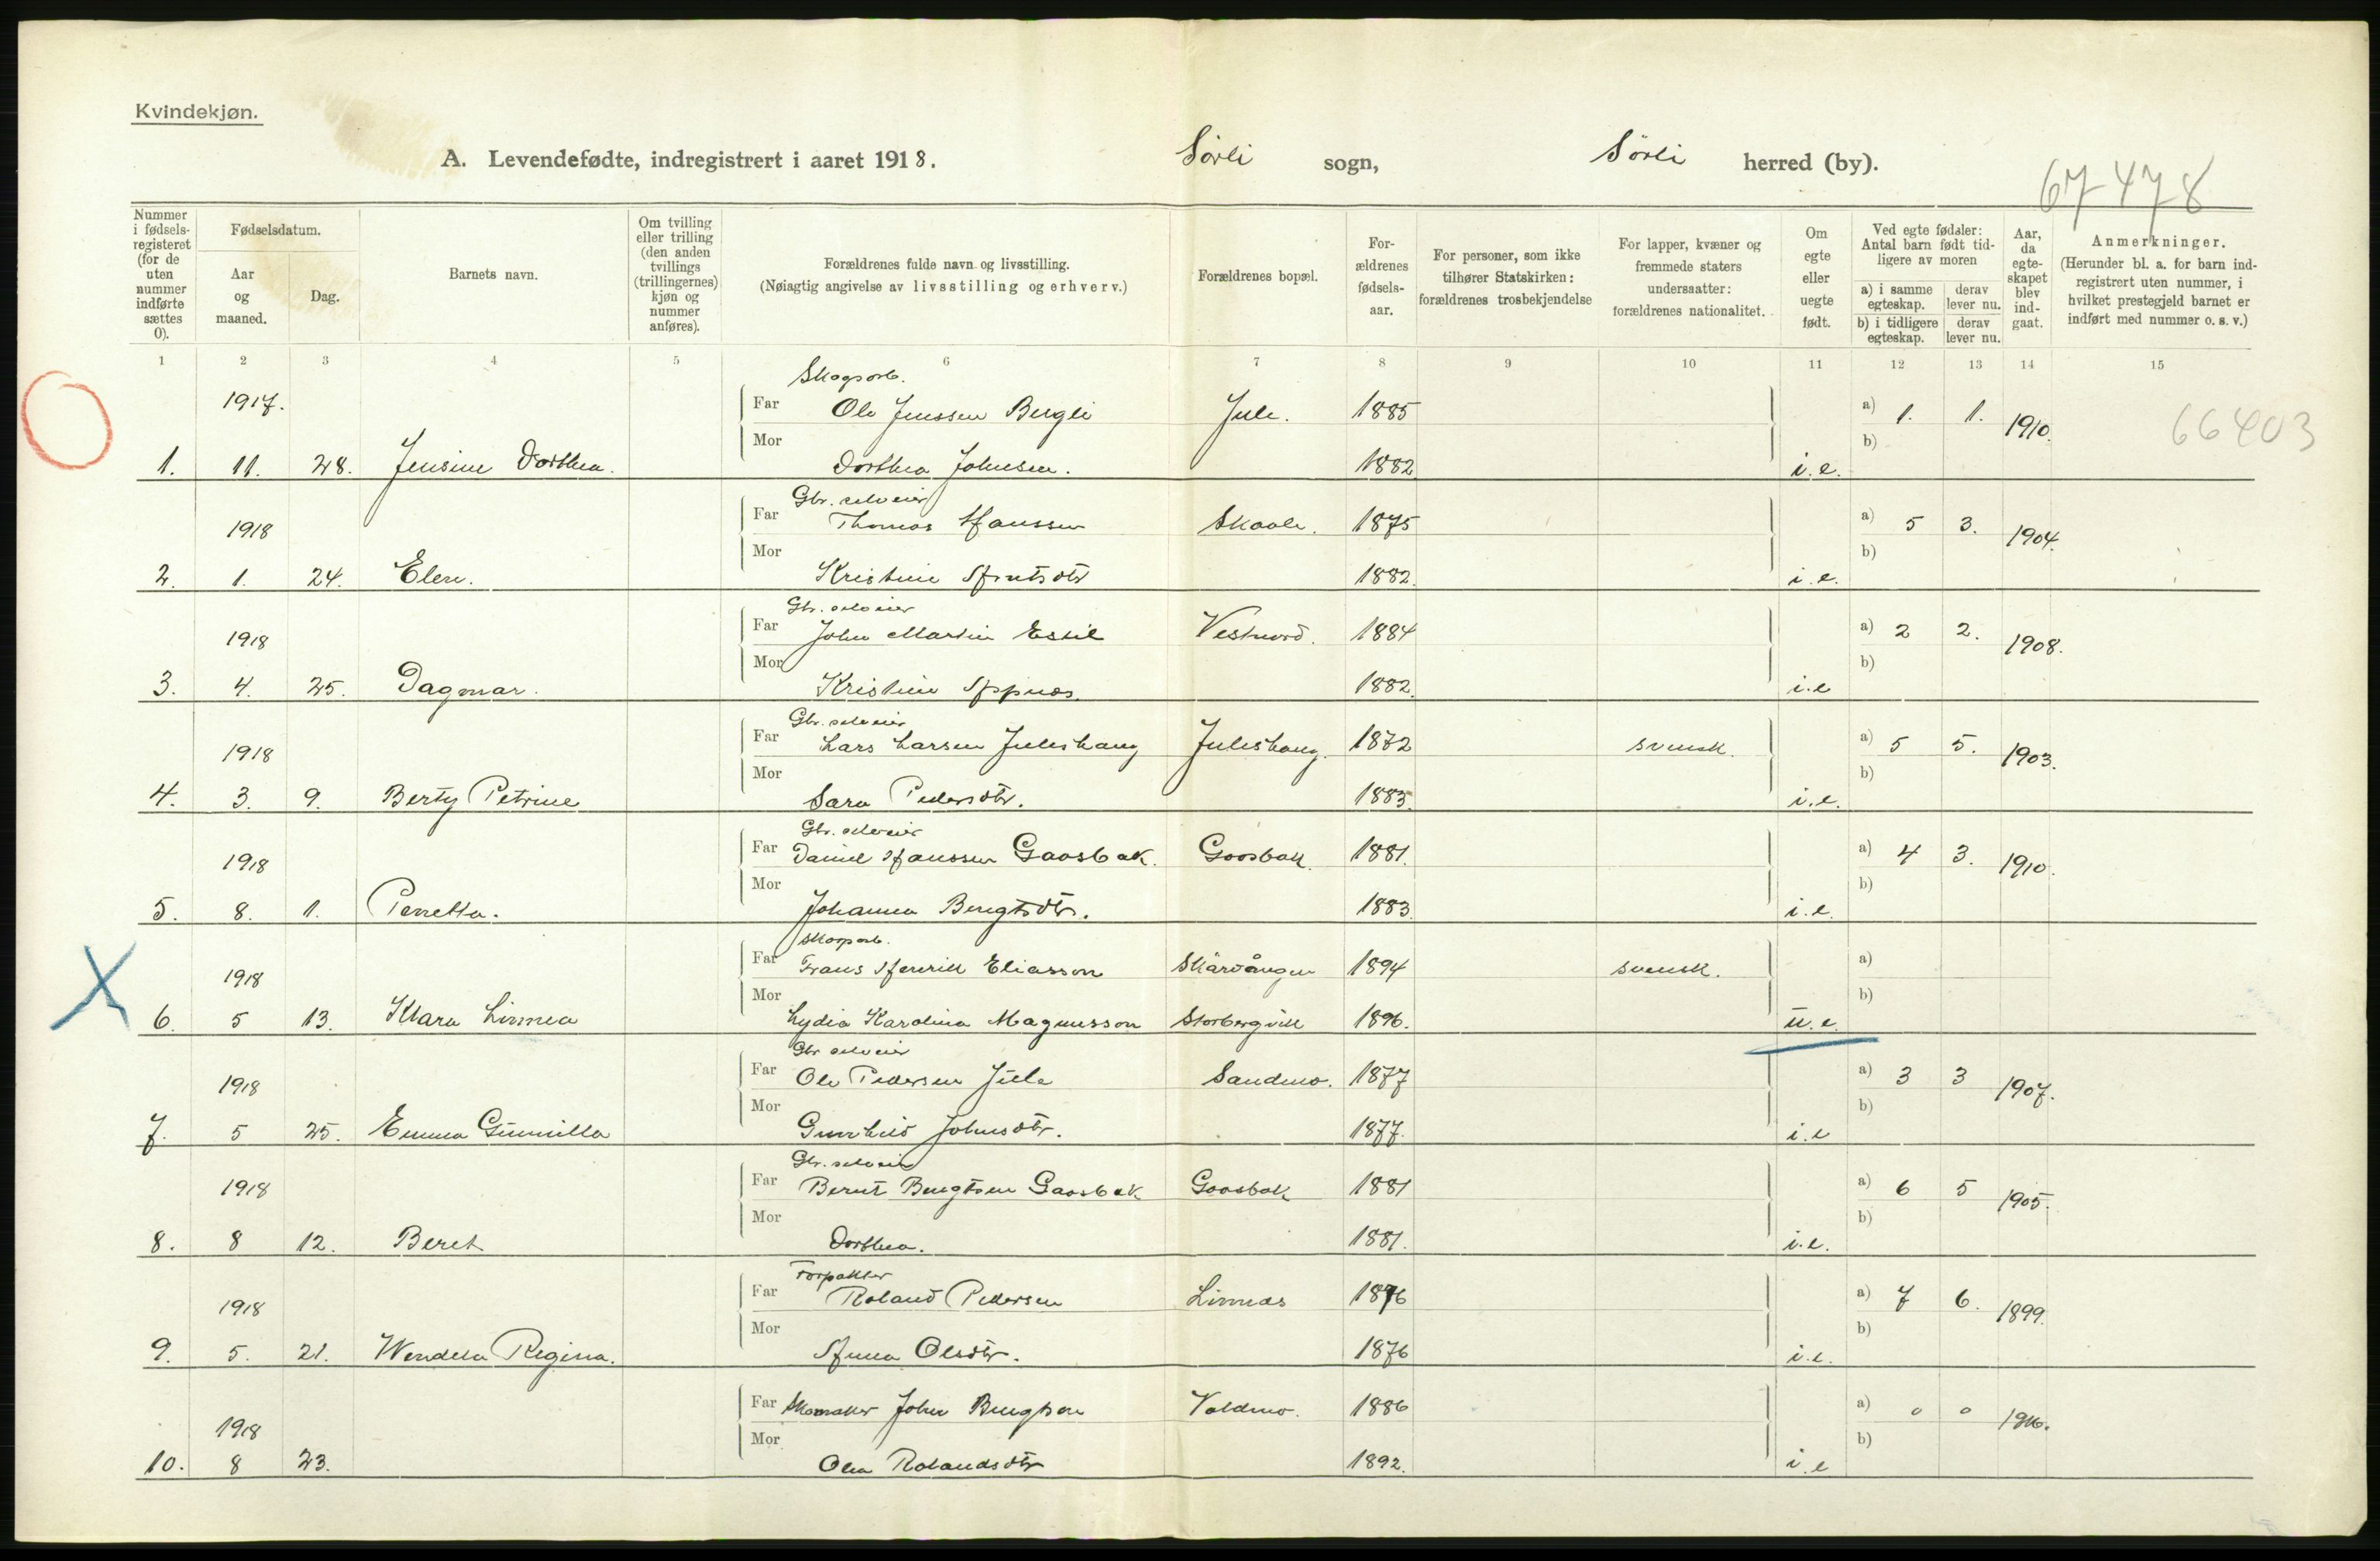 Kvindekjøn.
A. Levendefødte, indregistrert i aaret 1918. Sörli sogn, Sörli herred (by).
67478
Nummer i fødselsregisteret (for de uten nummer indførte sættes 0).
Fødselsdatum.
Aar og maaned.
Dag.
Barnets navn.
Om tvilling eller trilling (den anden tvillings (trillingernes) kjøn og nummer anføres).
Forældrenes fulde navn og livsstilling. (Nøiagtig angivelse av livsstilling og erhverv.)
Forældrenes bopæl.
Forældrenes fødselsaar.
For personer, som ikke tilhører Statskirken: forældrenes trosbekjendelse
For lapper, kvæner og fremmede staters undersaatter: forældrenes nationalitet.
Om egte eller uegte født.
Ved egte fødsler: Antal barn født tidligere av moren
a) i samme egteskap. derav lever nu.
b) i tidligere egteskap. derav lever nu.
Aar, da egteskapet blev indgaat.
Anmerkninger. (Herunder bl. a. for barn indregistrert uten nummer, i hvilket prestegjeld barnet er indført med nummer o. s. v.)
1 2 3 4 5 6 7 8 9 10 11 12 13 14 15
Skogsarb.
1917. Far Ole Jenssen Bergli Jule. 1885 a) 1. 1. 1910. 66403
1. 11. 28. Jensine Dorthea. Mor Dorthea Johnsen. 1882 i.e. b)
Gbr. selveier
1918 Far Thomas Hanssen Skaale. 1875 a) 5 3. 1904.
2. 1. 24. Elen. Mor Kristine 1882. i.e. b)
Gbr. selveier
1918 Far John Martin Estil 1884 a) 2 2. 1908.
3. 4. 25. Dagmar. Mor Kristine Appnes. 1882. i.e b)
Gbr. selveier
1918 Far Lars Larsen Juleshaug Juleshaug. 1872 svensk. a) 5 5. 1903.
4. 3. 9. Berty Petrine Mor Sara Pedersdtr. 1883. i.e. b)
Gbr. selveier
1918 Far Daniel Hanssen Gaasbak. Gaasbak. 1881. a) 4 3. 1910.
5. 8. 1. Perretta. Mor Johanna Bengtsdtr. 1883. i.e. b)
Skogsarb.
1918 Far Frans Henrik Eliasson Skärvången 1894 svensk. a)
6. 5 13. Klara Linnea Mor Lydia Karolina Magnusson Storbergvik 1896. u.e. b)
Gbr selveier
1918 Far Ole Pedersen Jule Sandmo. 1877 a) 3 3 1907.
7. 5 25. Emma Gunnilla Mor Gunhild Johnsdtr. 1877. i.e b)
Gbr. selveier
1918 Far Bernt Bengtsen Gaasbak Gaasbak 1881 a) 6 5 1905.
8. 8 12. Beret Mor Dorthea. 1881. i.e. b)
Forpakter
1918 Far Roland Pedersen Limnes 1876 a) 7 6. 1899.
9. 5. 21. Wendela Regina. Mor Anna Olsdtr. 1876 i.e. b)
1918 Far Skomaker John Bengtsen Valdmo. 1886 a) 0 0 1916.
10. 8 23. Mor Olea Rolandsdtr 1892. i.e b)